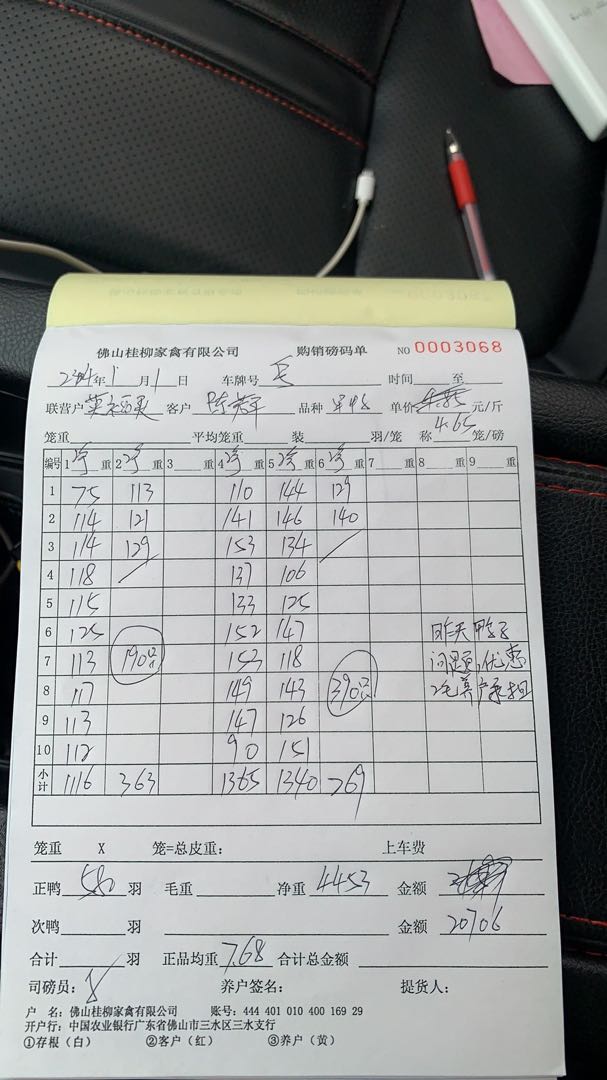 佛山桂柳家禽有限公司 购销磅码单 NO 0003068
年 1 月 1 日 车牌号 时间 至
联营户 客户 品种 单价 4.85 元/斤
4.65
笼重 平均笼重 装 羽/笼 称 笼/磅
编号 1 重 2 重 3 重 4 重 5 重 6 重 7 重 8 重 9 重
1 75 113 110 144 129
2 114 121 141 146 140
3 114 129 153 134
4 118 137 106
5 115 133 125
6 125 152 147 昨天鸭子
7 113 190只 152 118 问题,优惠
8 117 149 143 390只 2毛养户承担
9 113 147 126
10 112 90 151
小计 1116 363 1365 1340 269
笼重 X 笼=总皮重: 上车费
正鸭 580 羽 毛重 净重 4453 金额
次鸭 羽 金额 20706
合计 羽 正品均重 7.68 合计总金额
司磅员: 养户签名: 提货人:
户 名: 佛山桂柳家禽有限公司 账号: 444 401 010 400 169 29
开户行: 中国农业银行广东省佛山市三水区三水支行
①存根(白) ②客户(红) ③养户(黄)